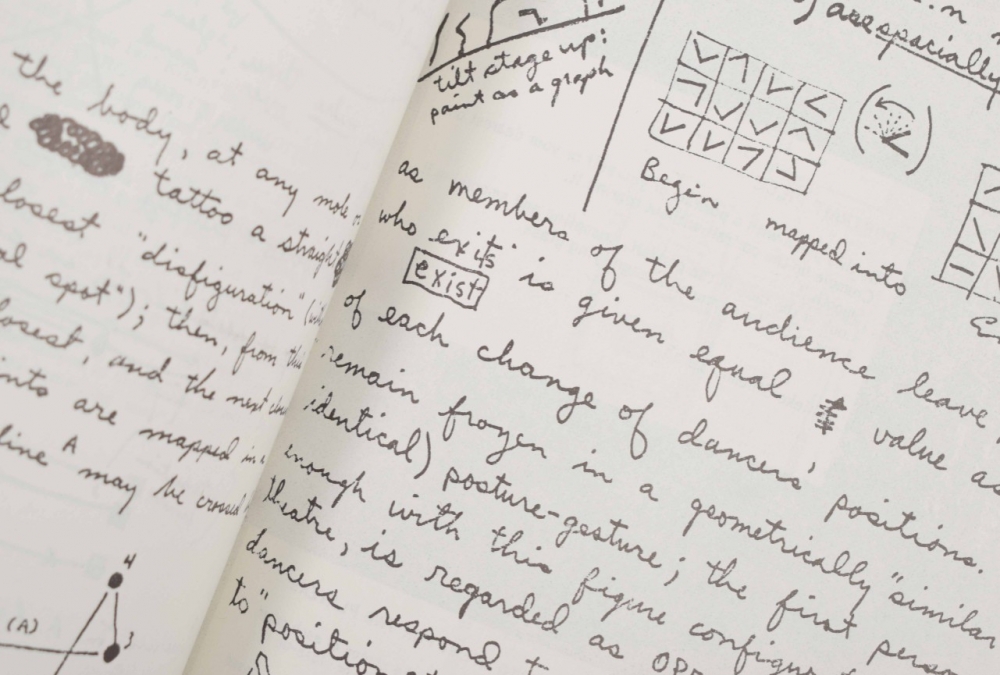 the body, at any mole
tattoo a straight
closest "disfiguration"
spot"); then, from this
closest, and the next
are mapped in
line A may be crossed
4
(A)
3
tilt stage up:
paint as a graph
are spacially
Begin mapped into
as members of the audience leave,
who exits is given equal value as
exist
of each change of dancers' positions.
remain frozen in a geometrically "similar
identical) posture-gesture; the first
enough with this figure
theatre, is regarded as
dancers respond
to "position